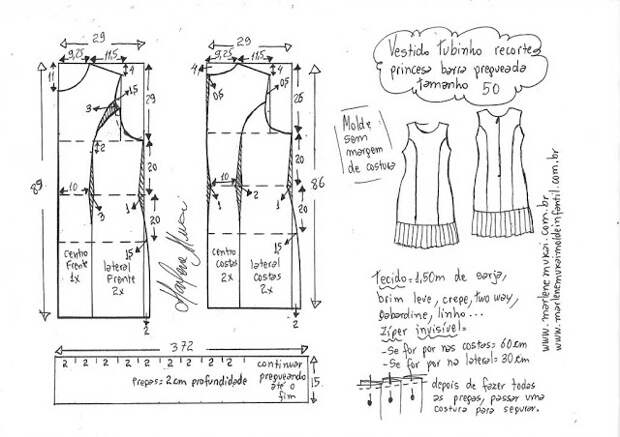 Vestido tubinho recortes
princesa barra pregueada
tamanho 50
Molde
sem
margem
de costura
29
9,25
11,5
11
4
1,5
3
29
2
20
89
10
20
3
1
15
centro
Frente
1x
lateral
Frente
2x
2
Marlene Mukai
29
9,25
11,5
4
4
0,5
0,5
26
20
86
10
2
1
1
20
15
centro
costas
2x
lateral
costas
2x
2
www.marlenemukai.com.br
www.marlenemukaimoldeinfantil.com.br
Tecido = 1,50m de sarja,
brim leve, crepe, two way,
gabardine, linho...
zíper invisível=
-Se for por nas costas= 60cm
-Se for por na lateral= 30cm
depois de fazer todas
as pregas, passar uma
costura para segurar.
372
2 2 2 2 2 2 2 2 2
continuar
pregueando
até o
fim
Pregas= 2cm profundidade
15